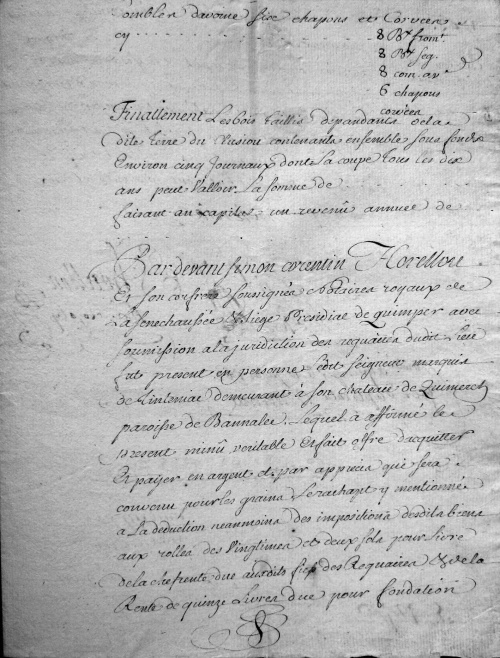 combles d'avoine six chapons et Corvées
cy . . . . . . . . . . 8 Bx. froint.
8 Bx. seg.
8 com. av.
6 chapons
corvées
Finallement Les bois taillis dependants de la
dite terre du contenants ensemble sous fonds
Environ cinq Journaux dont la coupe tous les dix
ans peut valloir La somme de . . . . . . . .
faisant au capital un revenu annuel de . . . .
Par devant simon corentin
Et son confrere soussignés Nottaires royaux de
La senechaussée & siege Presidial de quimper avec
soumission a la juridiction des reguaires dudit Lieu
fut present en personne ledit seigneur marquis
de tinteniac demeurant à son chateau de Quimerch
paroisse de Bannalec Lequel a affirmé le
present minû veritable Et fait offre d'acquitter
Et paÿer en argent et par appreci qui sera
convenu pour les grains Le rachapt y mentionné
a La deduction neanmoins des impositions desdits biens
aux rolles des Vingtiemes et deux sols pour livre
de la chefrente due auxdits fiefs des Reguaires & de la
Rente de quinze Livres due pour fondation